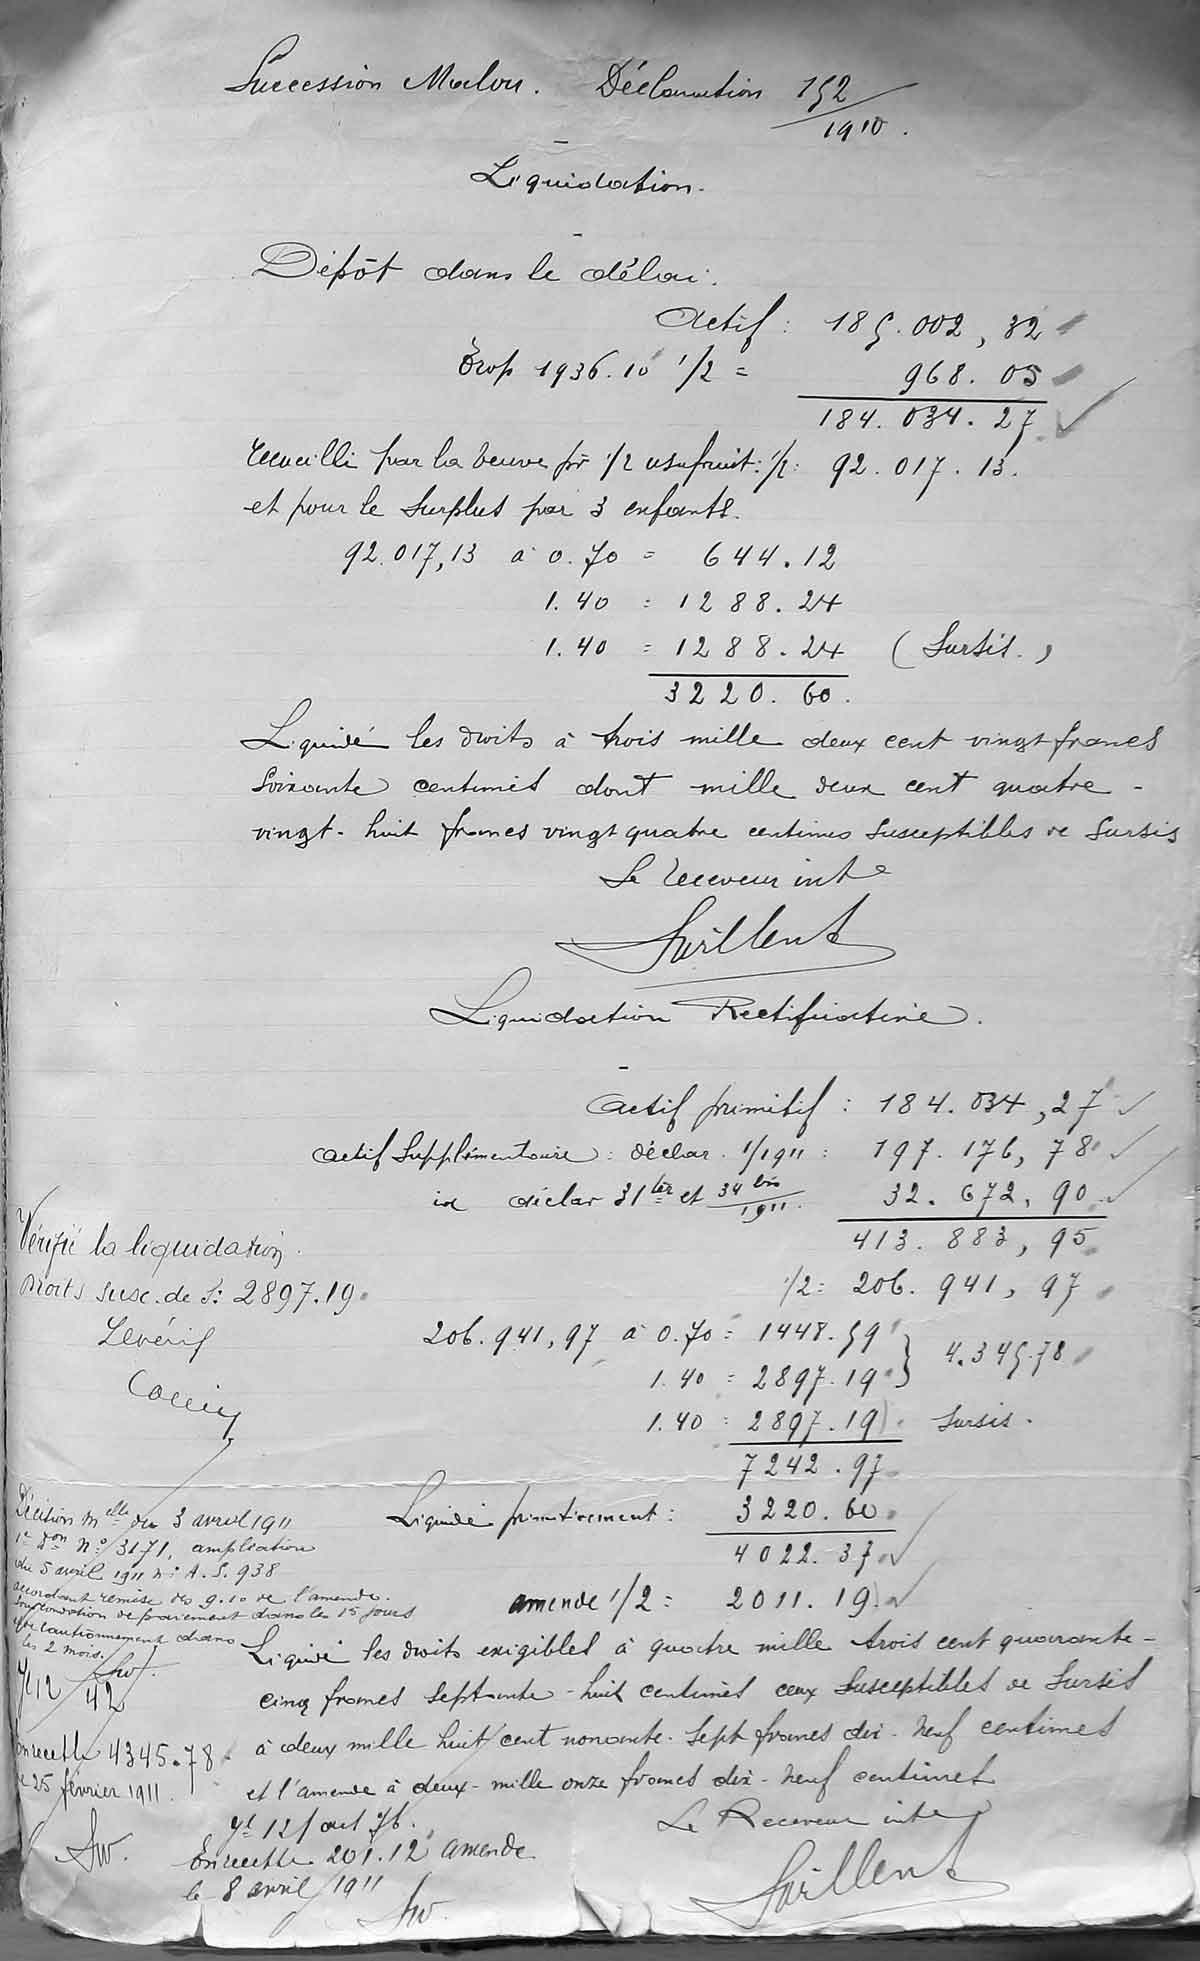 Succession Malou. Déclaration 152/1910.
Liquidation.
Dépôt dans le délai.
Actif : 185.002,32
Trop 1936.10 1/2 = 968.05
184.034.27
recueilli par la veuve pr 1/2 usufruit : 1/2 : 92.017.13.
et pour le surplus par 3 enfants.
92.017,13 à 0.70 = 644.12
1.40 = 1288.24
1.40 = 1288.24 (Sursis.)
3220.60.
Liquidé les droits à trois mille deux cent vingt francs
soixante centimes dont mille deux cent quatre-
vingt-huit francs vingt quatre centimes susceptibles de sursis
Le receveur inte
Liquidation Rectificative.
Actif primitif : 184.034,27
Actif supplémentaire : déclar. 1/1911 : 197.176,78
id déclar 31ter et 34bis/1911. 32.672,90
413.883,95
1/2 = 206.941,97
Vérifié la liquidation.
Droits susc. de S: 2897.19
206.941,97 à 0.70 = 1448.59
4.345.78
1.40 = 2897.19
1.40 = 2897.19 Sursis.
7242.97
Liquidé primitivement : 3220.60
4022.37
amende 1/2 = 2011.19
Décision Melle du 3 avril 1911
1e Don No 3171, ampliation
du 5 avril 1911 No A.S. 938
accordant remise des 9.10 de l'amende.
sous condition de paiement dans les 15 jours
et de cautionnement dans
les 2 mois.
Sw.
42
Liquidé les droits exigibles à quatre mille trois cent quarante-
cinq francs septante-huit centimes ceux susceptibles de sursis
à deux mille huit cent nonante-sept francs dix-neuf centimes
et l'amende à deux-mille onze francs dix-neuf centimes
En recette 4345.78
le 25 février 1911.
Sw.
Le Receveur inte
En recette 201.12 amende
le 8 avril 1911
Sw.